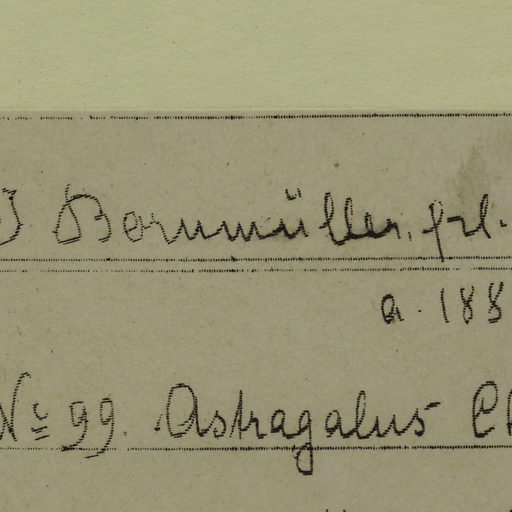 J Bornmüller, frl.
a. 188
No 99. Astragalus